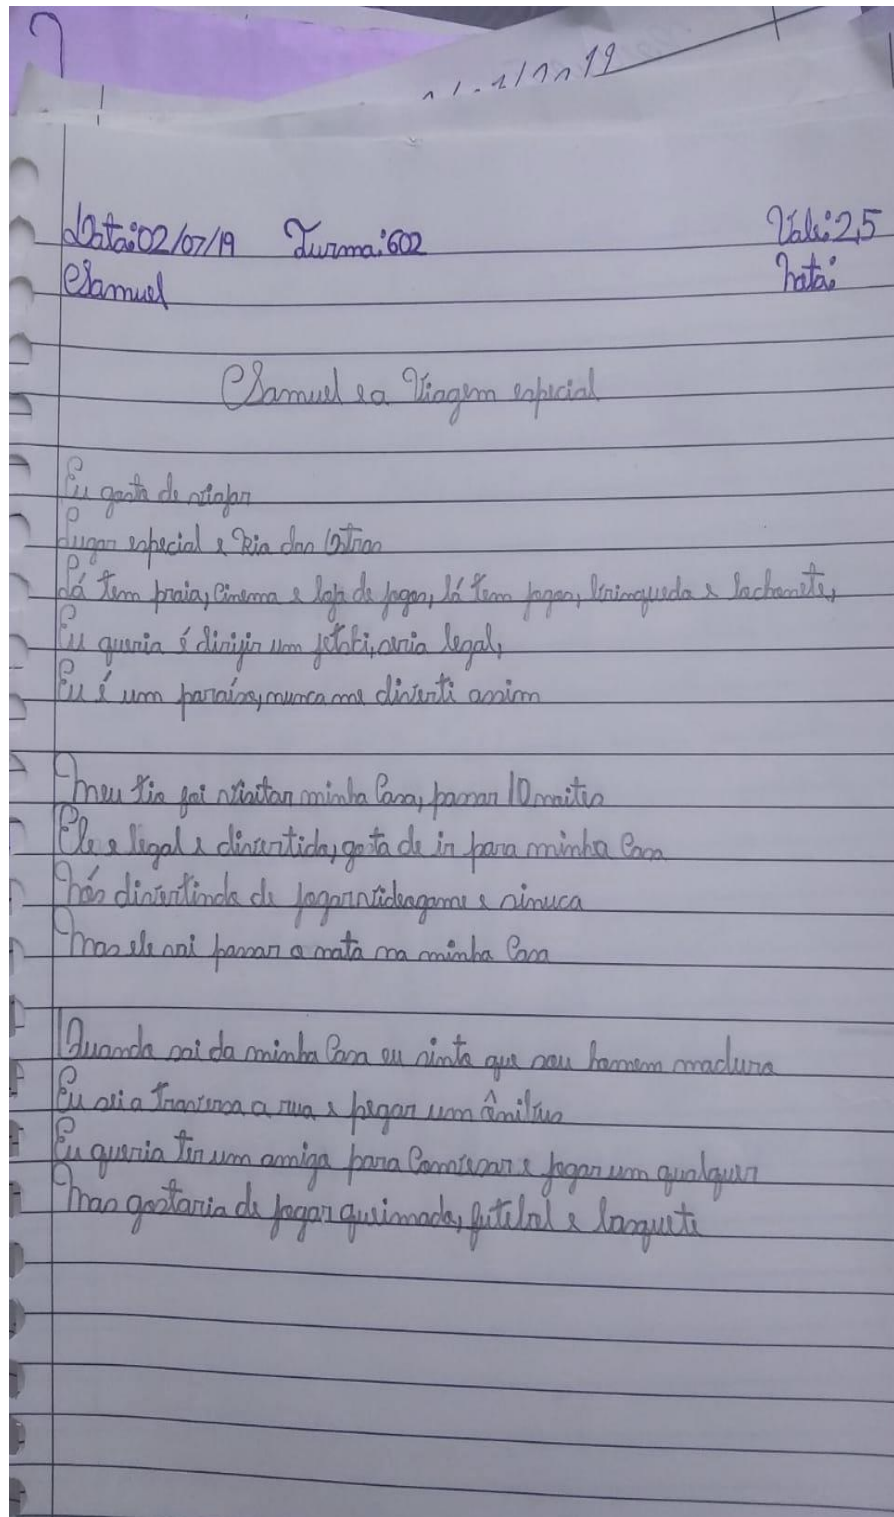 Data:02/07/19 Turma:602 Vale:2,5
Samuel Nota:
Samuel e a Viagem especial
Eu gosto de viajar
Lugar especial e Rio das Ostras
Lá tem praia, Cinema e loja de jogos, lá tem jogos, brinquedo e lachonete,
Eu queria é dirigir um jetski, seria legal,
Eu é um paraíso, nunca me diverti assim
Meu tio foi visitar minha Casa, passar 10 noites
Ele e legal e divertido, gosta de ir para minha Casa
Nós divertindo de jogar videogame e sinuca
Mas ele vai passar o nata na minha Casa
Quando sai da minha Casa eu sinto que sou homem maduro
Eu a rua e pegar um ônibus
Eu queria ter um amigo para Conversar e jogar um qualquer
Mas gostaria de jogar queimado, futebol e basquete